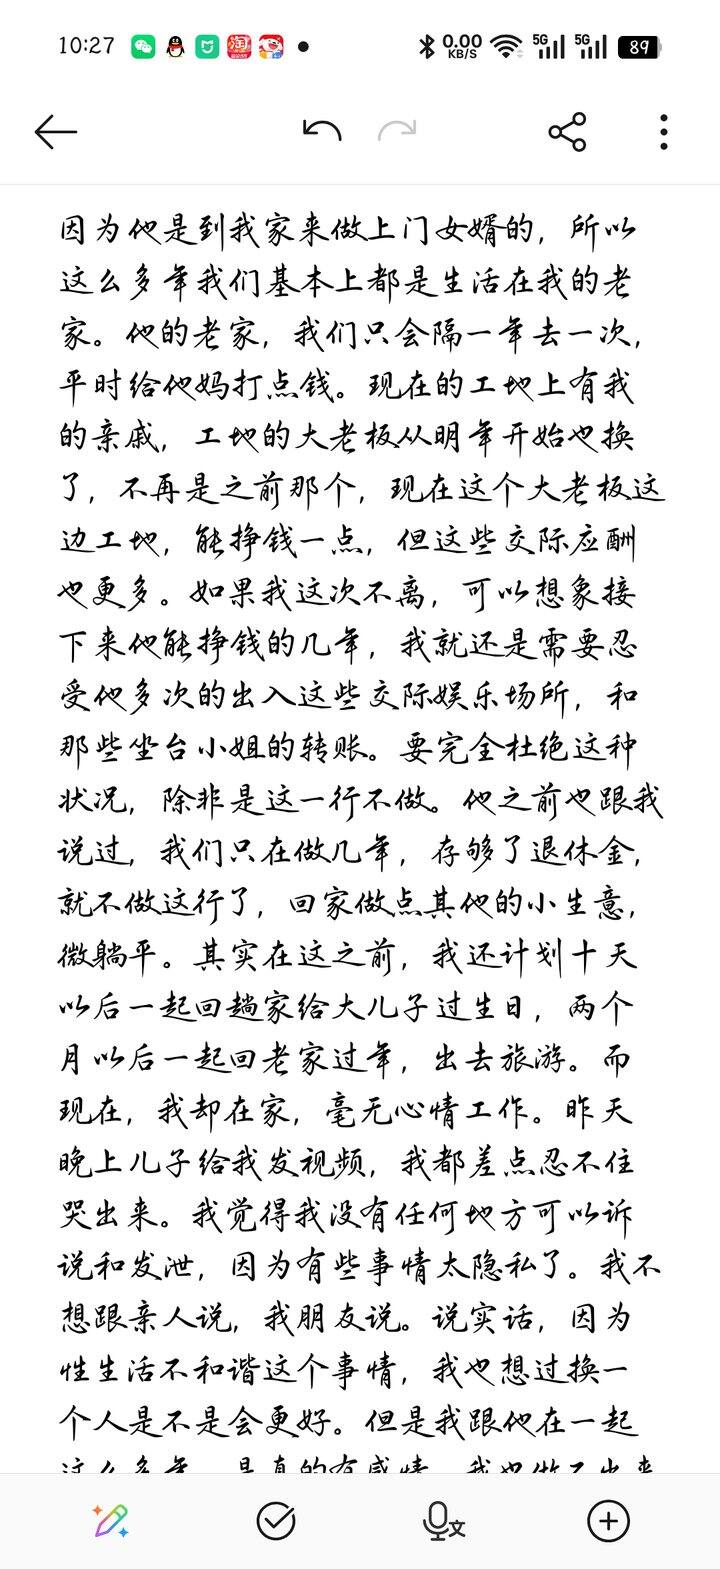 10:27
0.00
KB/S
5G
5G
89
因为他是到我家来做上门女婿的，所以
这么多年我们基本上都是生活在我的老
家。他的老家，我们只会隔一年去一次，
平时给他妈打点钱。现在的工地上有我
的亲戚，工地的大老板从明年开始也换
了，不再是之前那个，现在这个大老板这
边工地，能挣钱一点，但这些交际应酬
也更多。如果我这次不离，可以想象接
下来他能挣钱的几年，我就还是需要忍
受他多次的出入这些交际娱乐场所，和
那些坐台小姐的转账。要完全杜绝这种
状况，除非是这一行不做。他之前也跟我
说过，我们只在做几年，存够了退休金，
就不做这行了，回家做点其他的小生意，
微躺平。其实在这之前，我还计划十天
以后一起回趟家给大儿子过生日，两个
月以后一起回老家过年，出去旅游。而
现在，我却在家，毫无心情工作。昨天
晚上儿子给我发视频，我都差点忍不住
哭出来。我觉得我没有任何地方可以诉
说和发泄，因为有些事情太隐私了。我不
想跟亲人说，我朋友说。说实话，因为
性生活不和谐这个事情，我也想过换一
个人是不是会更好。但是我跟他在一起
这么多年，是真的有感情，我也做不出来
文